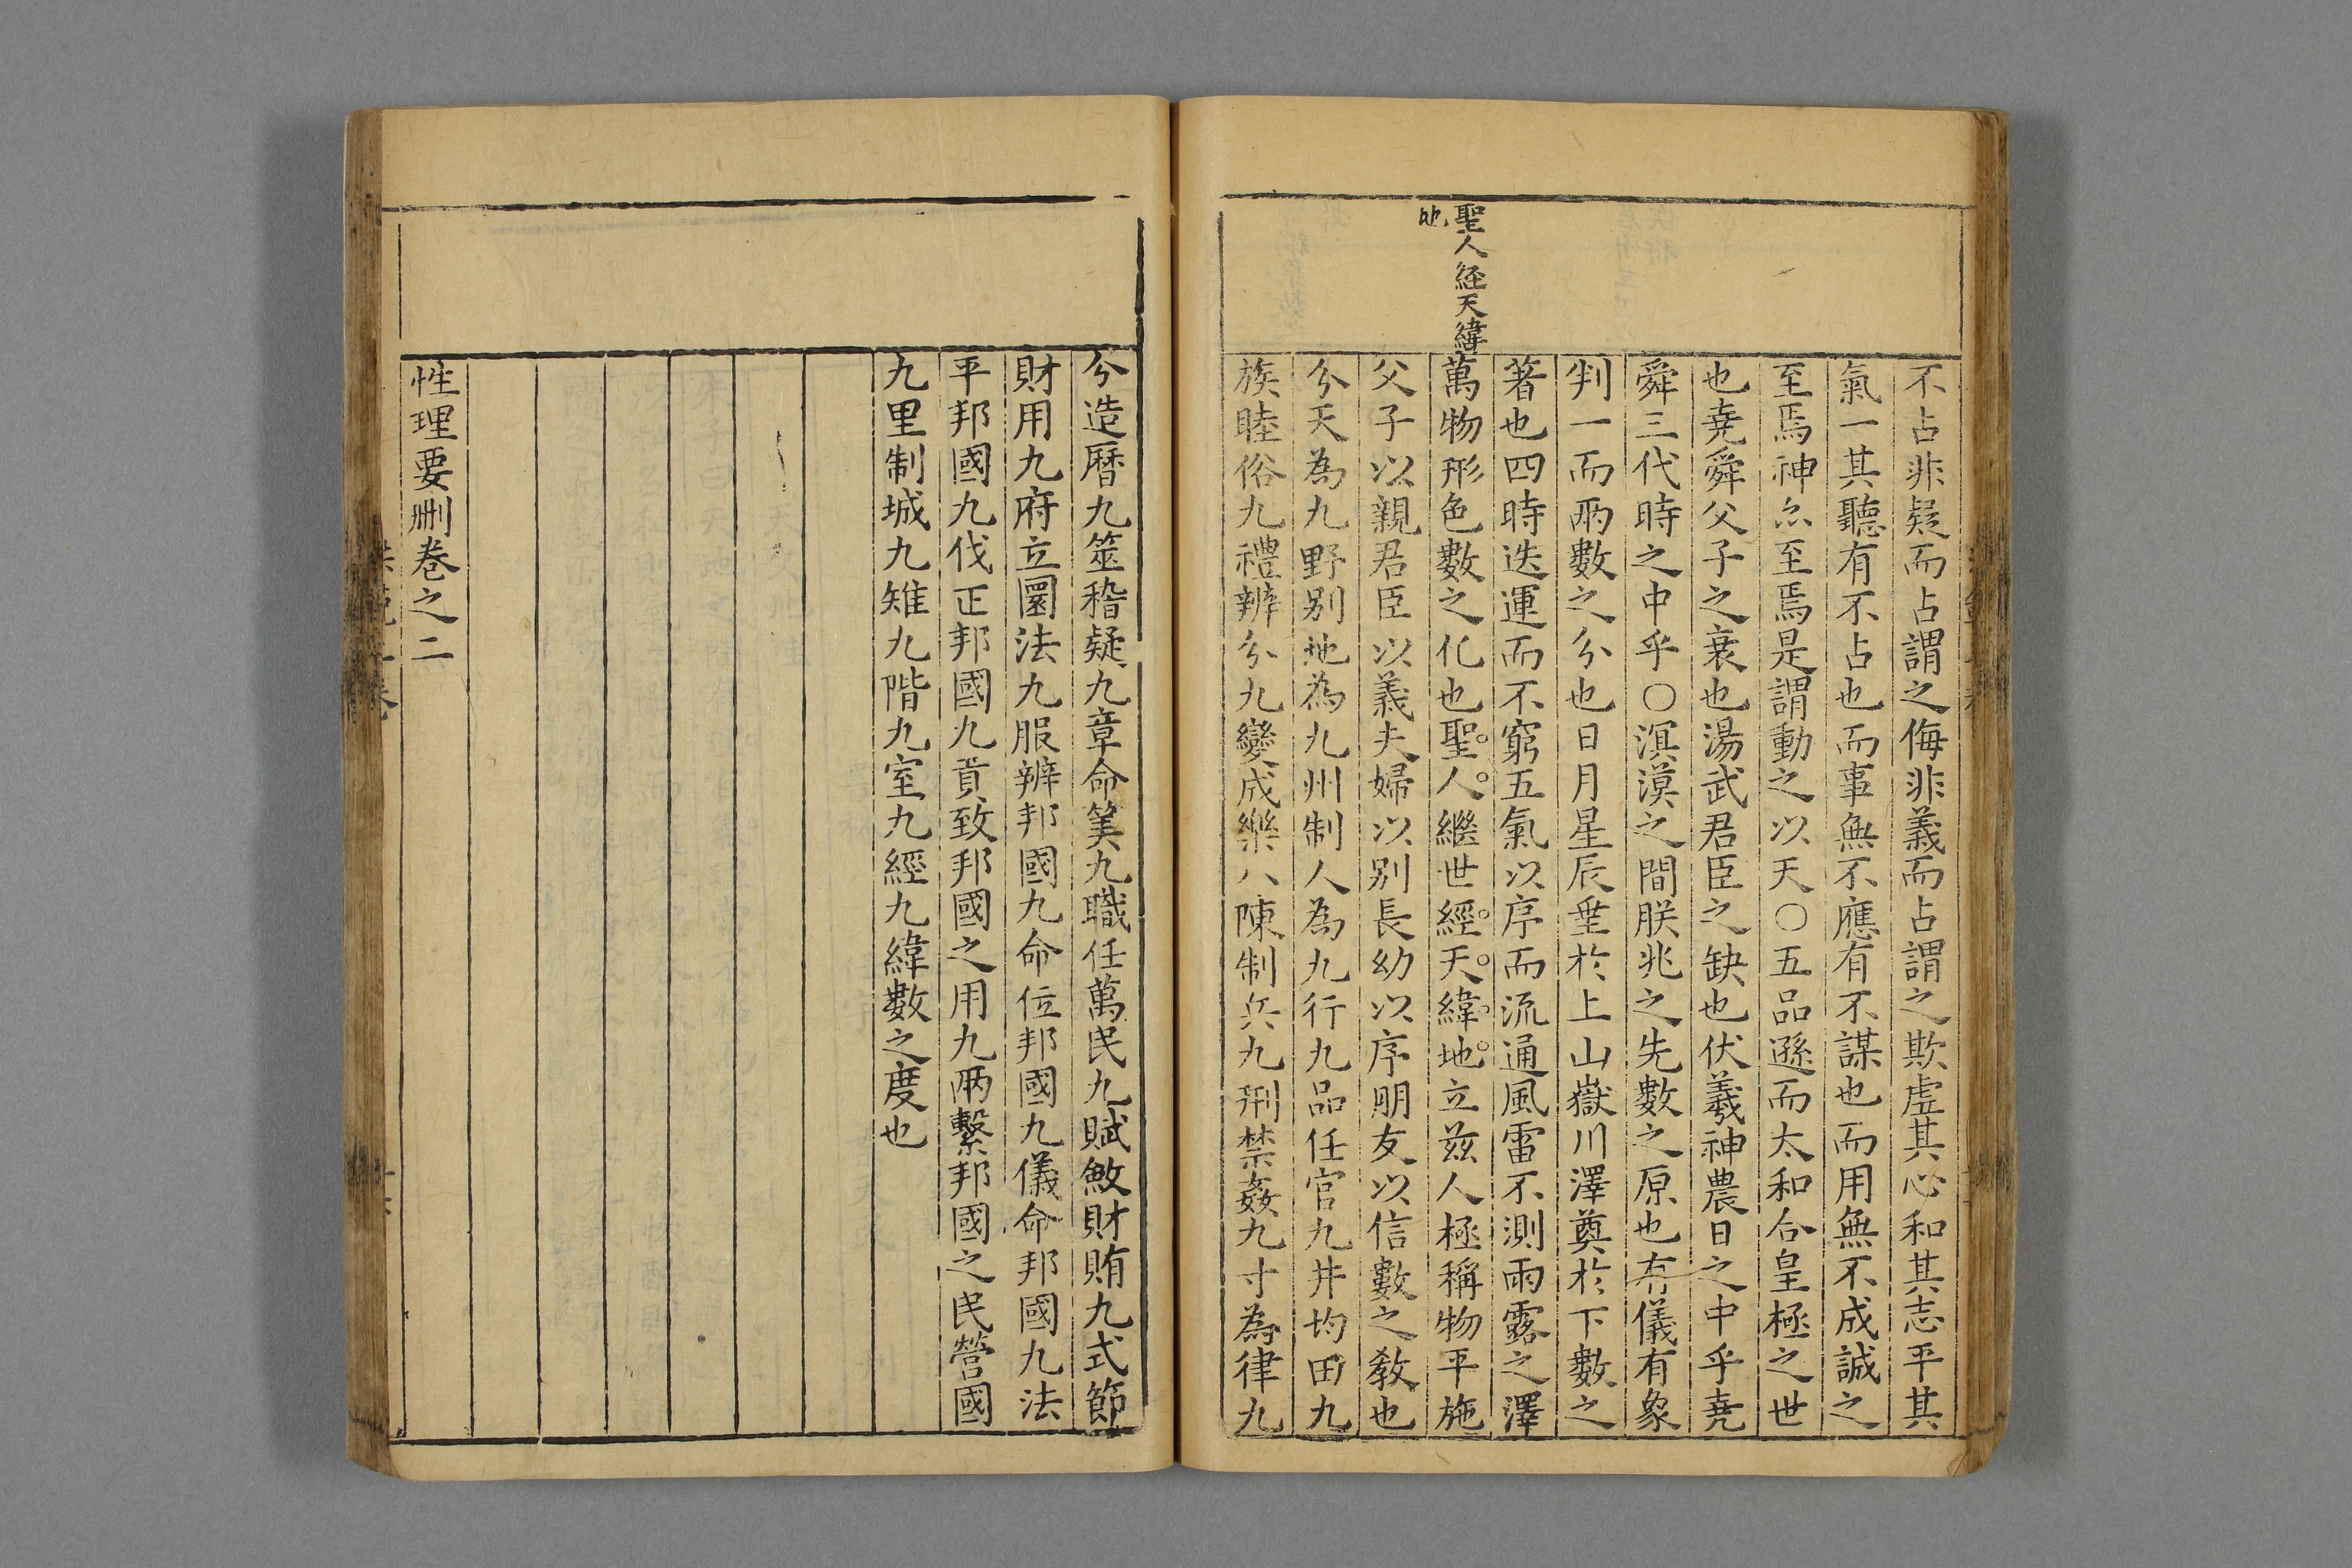 不占非疑而占謂之侮非義而占謂之欺虛其心和其志平其
氣一其聽有不占也而事無不應有不謀也而用無不成誠之
至焉神亦至焉是謂動之以天〇五品遜而太和合皇極之世
也堯舜父子之衰也湯武君臣之缺也伏羲神農日之中乎堯
舜三代時之中乎〇溟漠之間朕兆之先數之原也有儀有象
判一而兩數之分也日月星辰垂於上山嶽川澤奠於下數之
著也四時迭運而不窮五氣以序而流通風雷不測雨露之澤
聖人經天緯
地
萬物形色數之化也聖人繼世經天緯地立茲人極稱物平施
父子以親君臣以義夫婦以別長幼以序朋友以信數之教也
分天為九野別地為九州制人為九行九品任官九井均田九
族睦俗九禮辨分九變成樂八陳制兵九刑禁姦九寸為律九
分造曆九筮稽疑九章命筭九職任萬民九賦斂財賄九式節
財用九府立圜法九服辨邦國九命位邦國九儀命邦國九法
平邦國九伐正邦國九貢致邦國之用九兩繫邦國之民營國
九里制城九雉九階九室九經九緯數之度也
性理要刪卷之二